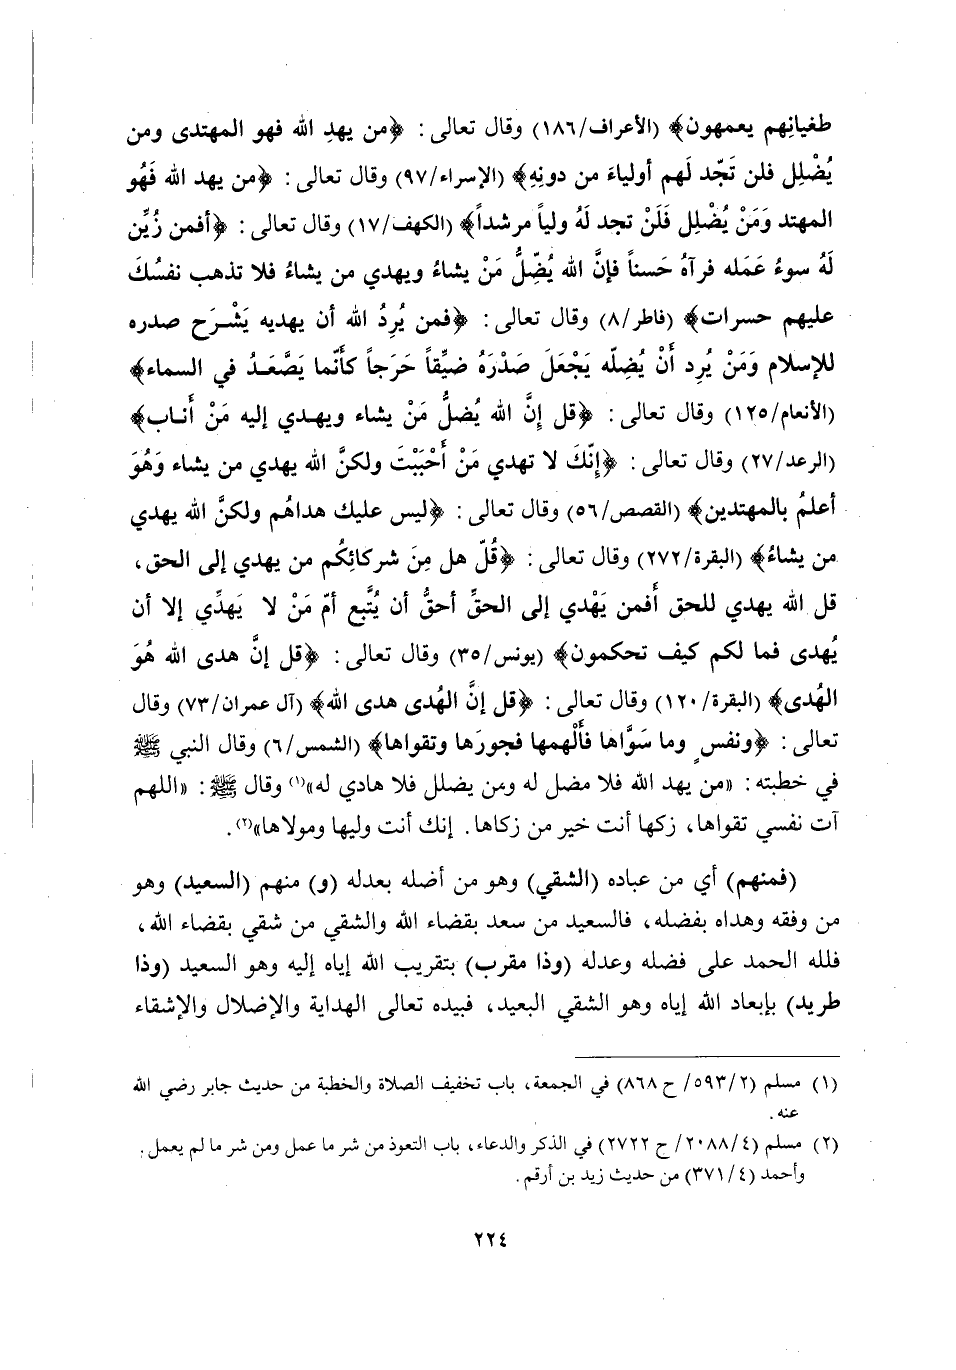 طغيانِهم يعمهون﴾ (الأعراف/١٨٦) وقال تعالى: ﴿من يهدِ الله فهو المهتدى ومن
يُضْلِل فلن تَجّد لَهم أولياءَ من دونِهِ﴾ (الإسراء/٩٧) وقال تعالى: ﴿من يهد الله فَهُو
المهتد وَمَنْ يُضْلِل فَلَنْ تجد لَهُ ولياً مرشداً﴾ (الكهف/١٧) وقال تعالى: ﴿أفمن زُيِّن
لَهُ سوءُ عَمَله فرآهُ حَسناً فإنَّ الله يُضِّلُّ مَنْ يشاءُ ويهدي من يشاءُ فلا تذهب نفسُكَ
عليهم حسرات﴾ (فاطر/٨) وقال تعالى: ﴿فمن يُرِدُ الله أن يهديه يَشْرَح صدره
للإسلام وَمَنْ يُرِد أَنْ يُضِلّه يَجْعَلَ صَدْرَهُ ضيِّقاً حَرَجاً كأنّما يَصَّعَدُ في السماء﴾
(الأنعام/١٢٥) وقال تعالى: ﴿قل إِنَّ الله يُضلُّ مَنْ يشاء ويهدي إليه مَنْ أَناب﴾
(الرعد/٢٧) وقال تعالى: ﴿إنّكَ لا تهدي مَنْ أَحْبَبْتَ ولكنَّ الله يهدي من يشاء وَهُوَ
أعلمُ بالمهتدين﴾ (القصص/٥٦) وقال تعالى: ﴿ليس عليك هداهُم ولكنَّ الله يهدي
من يشاءُ﴾ (البقرة/٢٧٢) وقال تعالى: ﴿قُلّ هل مِنَ شركائِكُم من يهدي إلى الحق،
قل الله يهدي للحق أَفمن يَهْدي إلى الحقِّ أحقُّ أن يُتَّبع أمّ مَنْ لا يَهدِّي إلا أن
يُهدى فما لكم كيف تحكمون﴾ (يونس/٣٥) وقال تعالى: ﴿قل إنَّ هدى الله هُوَ
الهُدى﴾ (البقرة/١٢٠) وقال تعالى: ﴿قل إنَّ الهُدى هدى الله﴾ (آل عمران/٧٣) وقال
تعالى: ﴿ونفسٍ وما سَوَّاها فأَلْهمها فجورَها وتقواها﴾ (الشمس/٦) وقال النبي ﷺ
في خطبته: «من يهد الله فلا مضل له ومن يضلل فلا هادي له»(١) وقال ﷺ: «اللهم
آت نفسي تقواها، زكها أنت خير من زكاها. إنك أنت وليها ومولاها»(٢).
(فمنهم) أي من عباده (الشقي) وهو من أضله بعدله (و) منهم (السعيد) وهو
من وفقه وهداه بفضله، فالسعيد من سعد بقضاء الله والشقي من شقي بقضاء الله،
فلله الحمد على فضله وعدله (وذا مقرب) بتقريب الله إياه إليه وهو السعيد (وذا
طريد) بإبعاد الله إياه وهو الشقي البعيد، فبيده تعالى الهداية والإضلال والإشقاء
(١) مسلم (٥٩٣/٢/ ح ٨٦٨) في الجمعة، باب تخفيف الصلاة والخطبة من حديث جابر رضي الله
عنه.
(٢) مسلم (٢٠٨٨/٤/ ح ٢٧٢٢) في الذكر والدعاء، باب التعوذ من شر ما عمل ومن شر ما لم يعمل.
وأحمد (٣٧١/٤) من حديث زيد بن أرقم.
٢٢٤